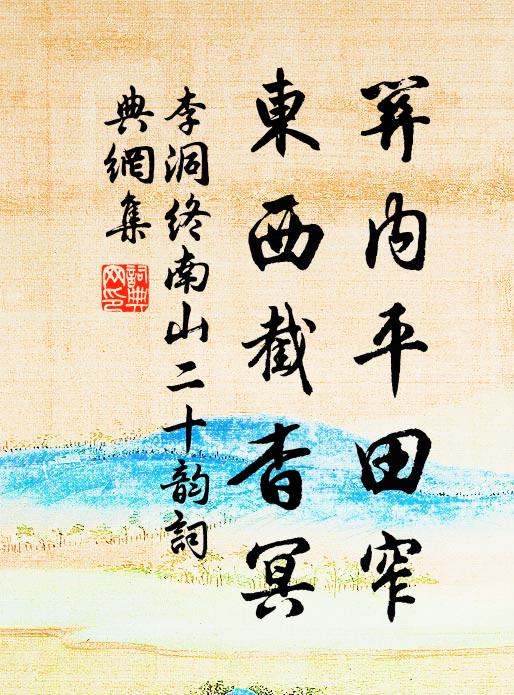 關內平田窄
東西截杳冥
李洞終南山二十韵詞
典網集
詞典
网印